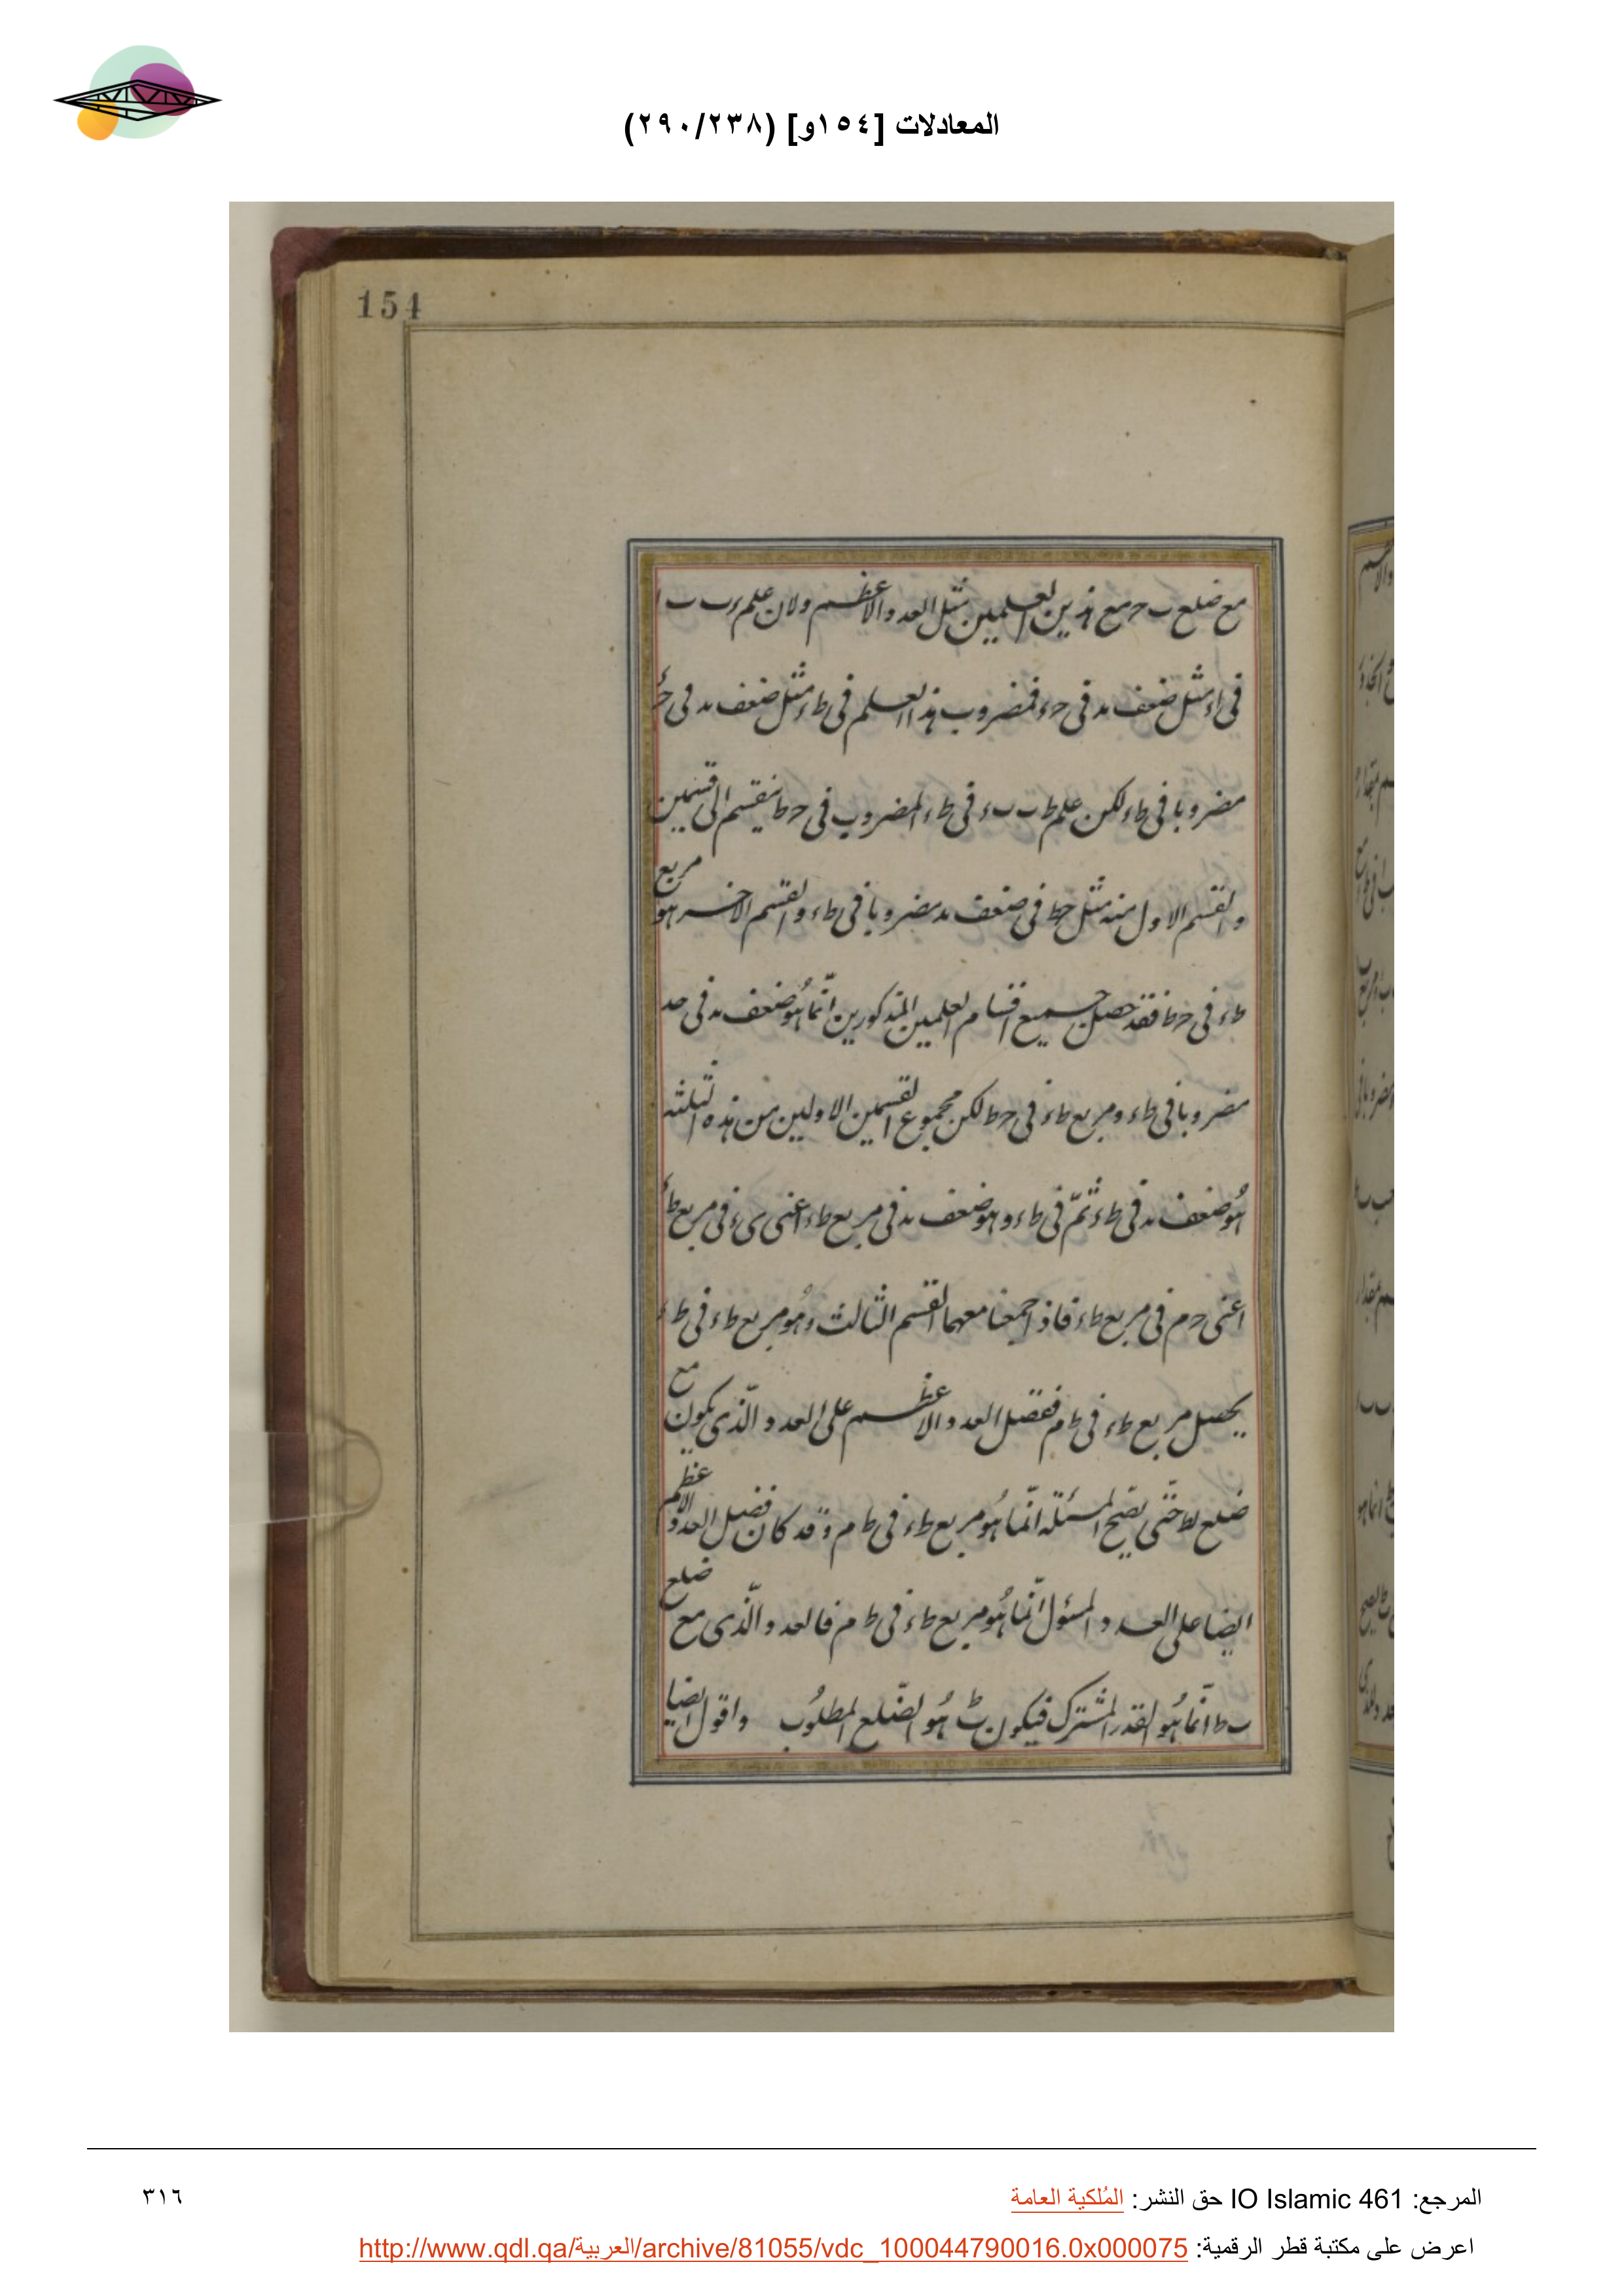 المعادلات [١٥٤و] (٢٩٠/٢٣٨)
154
مع ضلع ب ح مع هذين العلمين مثل العدد الاعظم ولان علم ء ب ب ا
في اء مثل ضعف ںد في حء فمضروب هذا العلم في طء مثل ضعف ںد في حء
مضروبا في طء لكن علم ط ب بء في طء المضروب في حط ينقسم الى قسمين
والقسم الاول منه مثل حط في ضعف ںد مضروبا في طء والقسم الاخر هو مربع
طء في حط فقد حصل جميع اقسام العلمين المذكورين انّما هُو ضعف ںد في حد
مضروبا في طء ومربع طء في حط لكن مجموع القسمين الاولين من هذه الثلثة
هُو ضعف ںد في طء ثمّ في طء وهو ضعف ںد في مربع طء اعنى ىء في مربع طء
اعنى حم في مربع طء فاذا جمعنا معهما القسم الثالث وهُو مربع طء في ط
يحصل مربع طء في طم ففضل العدد الاعظم على العدد الّذى يكون مع
ضلع بط حتّى يصح المسئلة انّما هُو مربع طء في طم وقد كان فضل العدد الاعظم
ايضا على العدد المسئول انّما هُو مربع طء في طم فالعدد الّذى مع ضلع
بط انّما هُو القدر المشترك فيكون بط هُو الضّلع المطلُوب واقول ايضا
المرجع: IO Islamic 461 حق النشر: المُلكية العامة
٣١٦
اعرض على مكتبة قطر الرقمية: http://www.qdl.qa/العربية/archive/81055/vdc_100044790016.0x000075